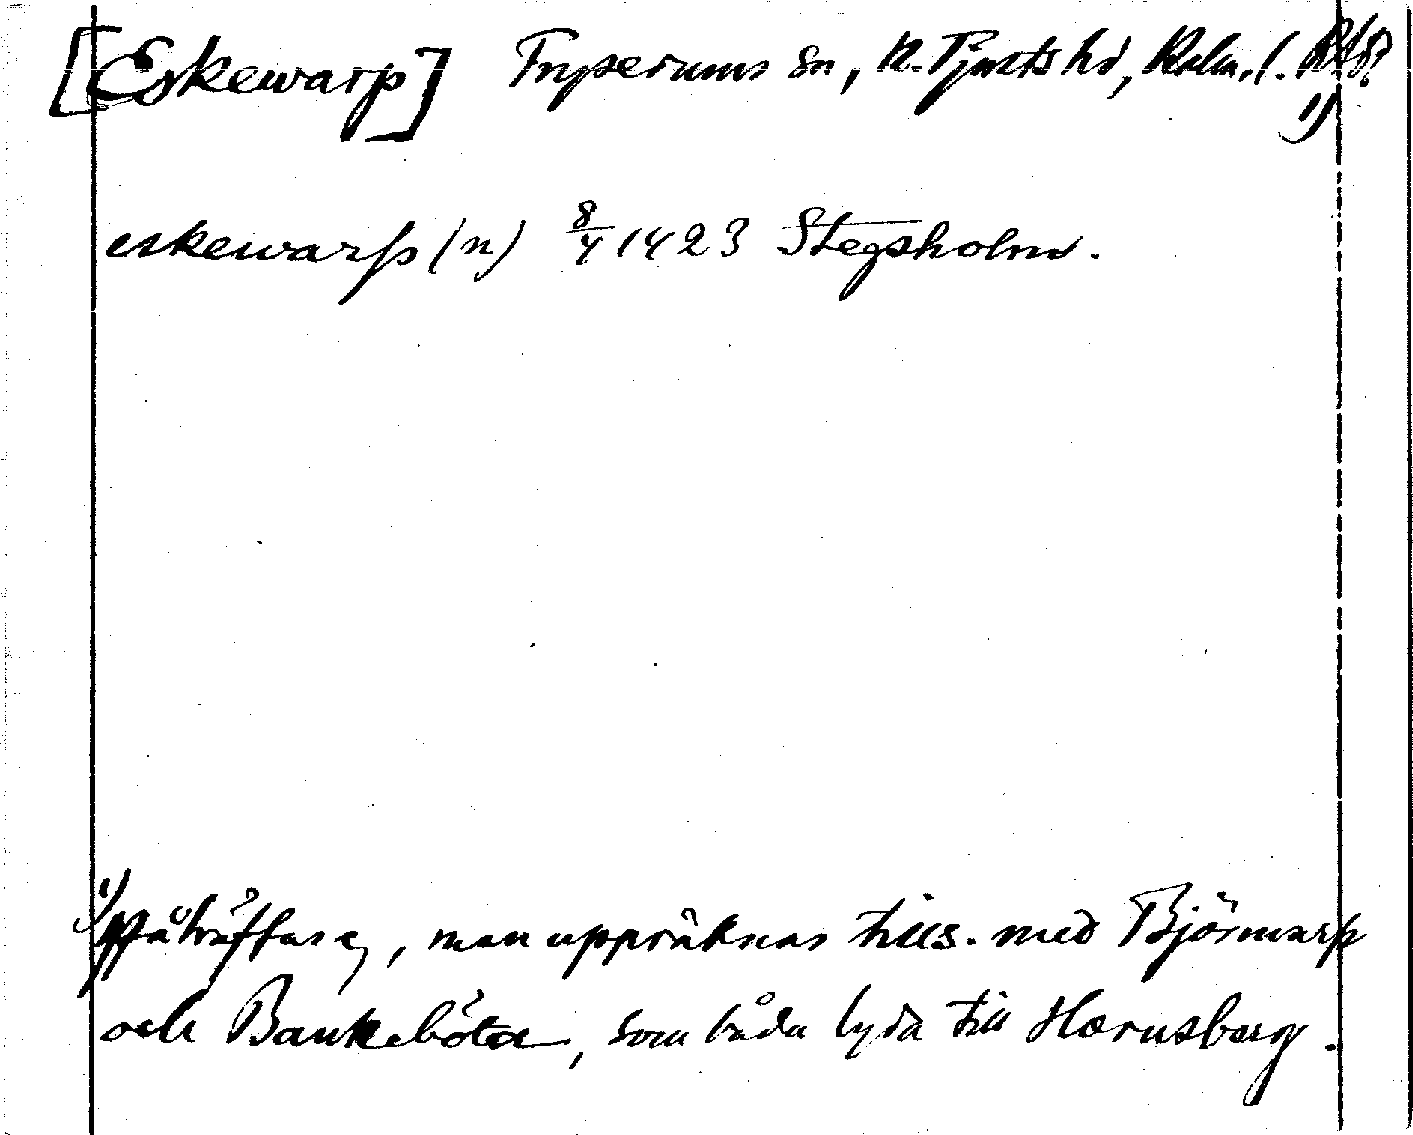 [Eskewarp] Tryserums sn, N. Tjusts hd, Kalm. l.
1)
eskewarp (n) 8/4 1423 Stegsholm.
1) Påträffas ej, men uppräknas tills. med Björnwarp
och Bankeböta, som båda lyda till Hærnsberg.